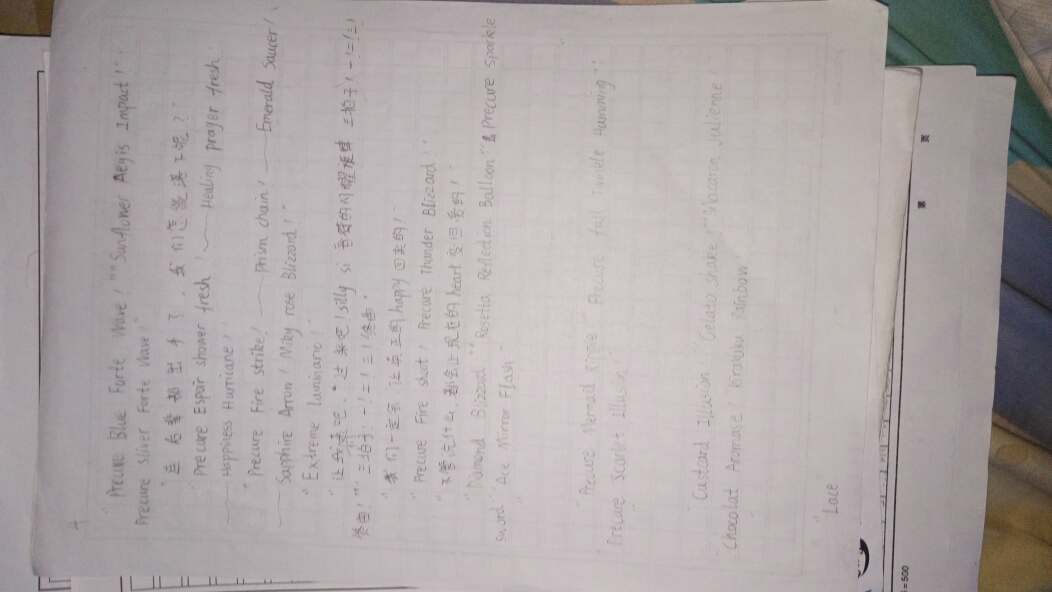 "Precure Blue Forte Wave!""Sunflower Aegis Impact!"
Precure sliver Forte Wave!"
"连后辈都出手了，我们怎能落下呢？"
"Precure Espoir shower fresh!—— Healing prayer fresh
—— Happiness Hurricane!
"Precure Fire strike! —— Prism chain! —— Emerald Saucer!
—— Sapphire Arrow! Milky rose Blizzard!"
"Extreme Luminario!"
"让我来吧。""过来吧！silly si 音符的闪耀旋律 三拍子！一！二！三！
终曲！""三拍子！一！二！三！终曲！
"我们一定会让亚子的happy回来的！
"Precure Fire shoot! Precure Thunder Blizzard!"
"不管论什么，都会让现在的heart变回来的！"
"Diamond Blizzard""Rosetta Reflection Balloon""& Precure sparkle
sword""Ace Mirror Flash"
"Precure Mermaid Ripple" "Precure full Twinkle Humming"
Precure Scarlet Illusion!
"Custard Illusion! Gelato shake!""Macaron Julienne!
"Chocolat Aromase! Kirakira Rainbow"
"Lace
页
第
i=500